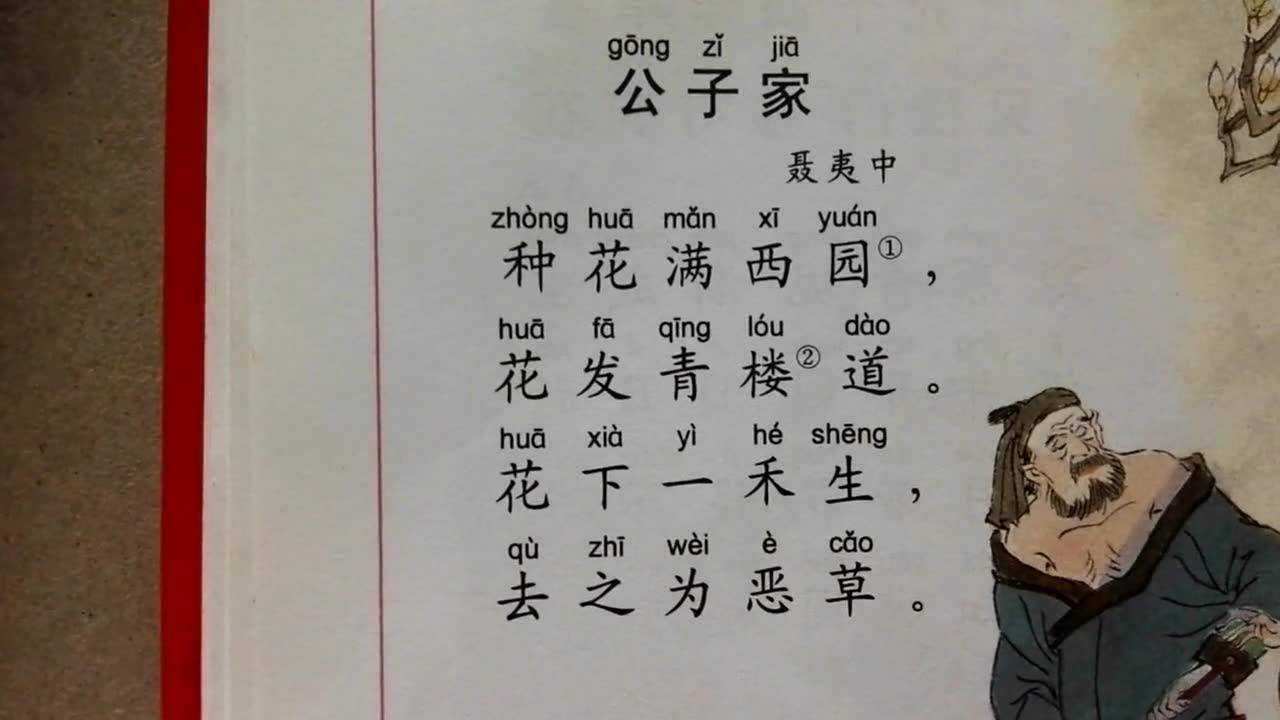 gōng zǐ jiā
公子家
聂夷中
zhòng huā mǎn xī yuán
种花满西园①，
huā fā qīng lóu dào
花发青楼②道。
huā xià yì hé shēng
花下一禾生，
qù zhī wèi è cǎo
去之为恶草。